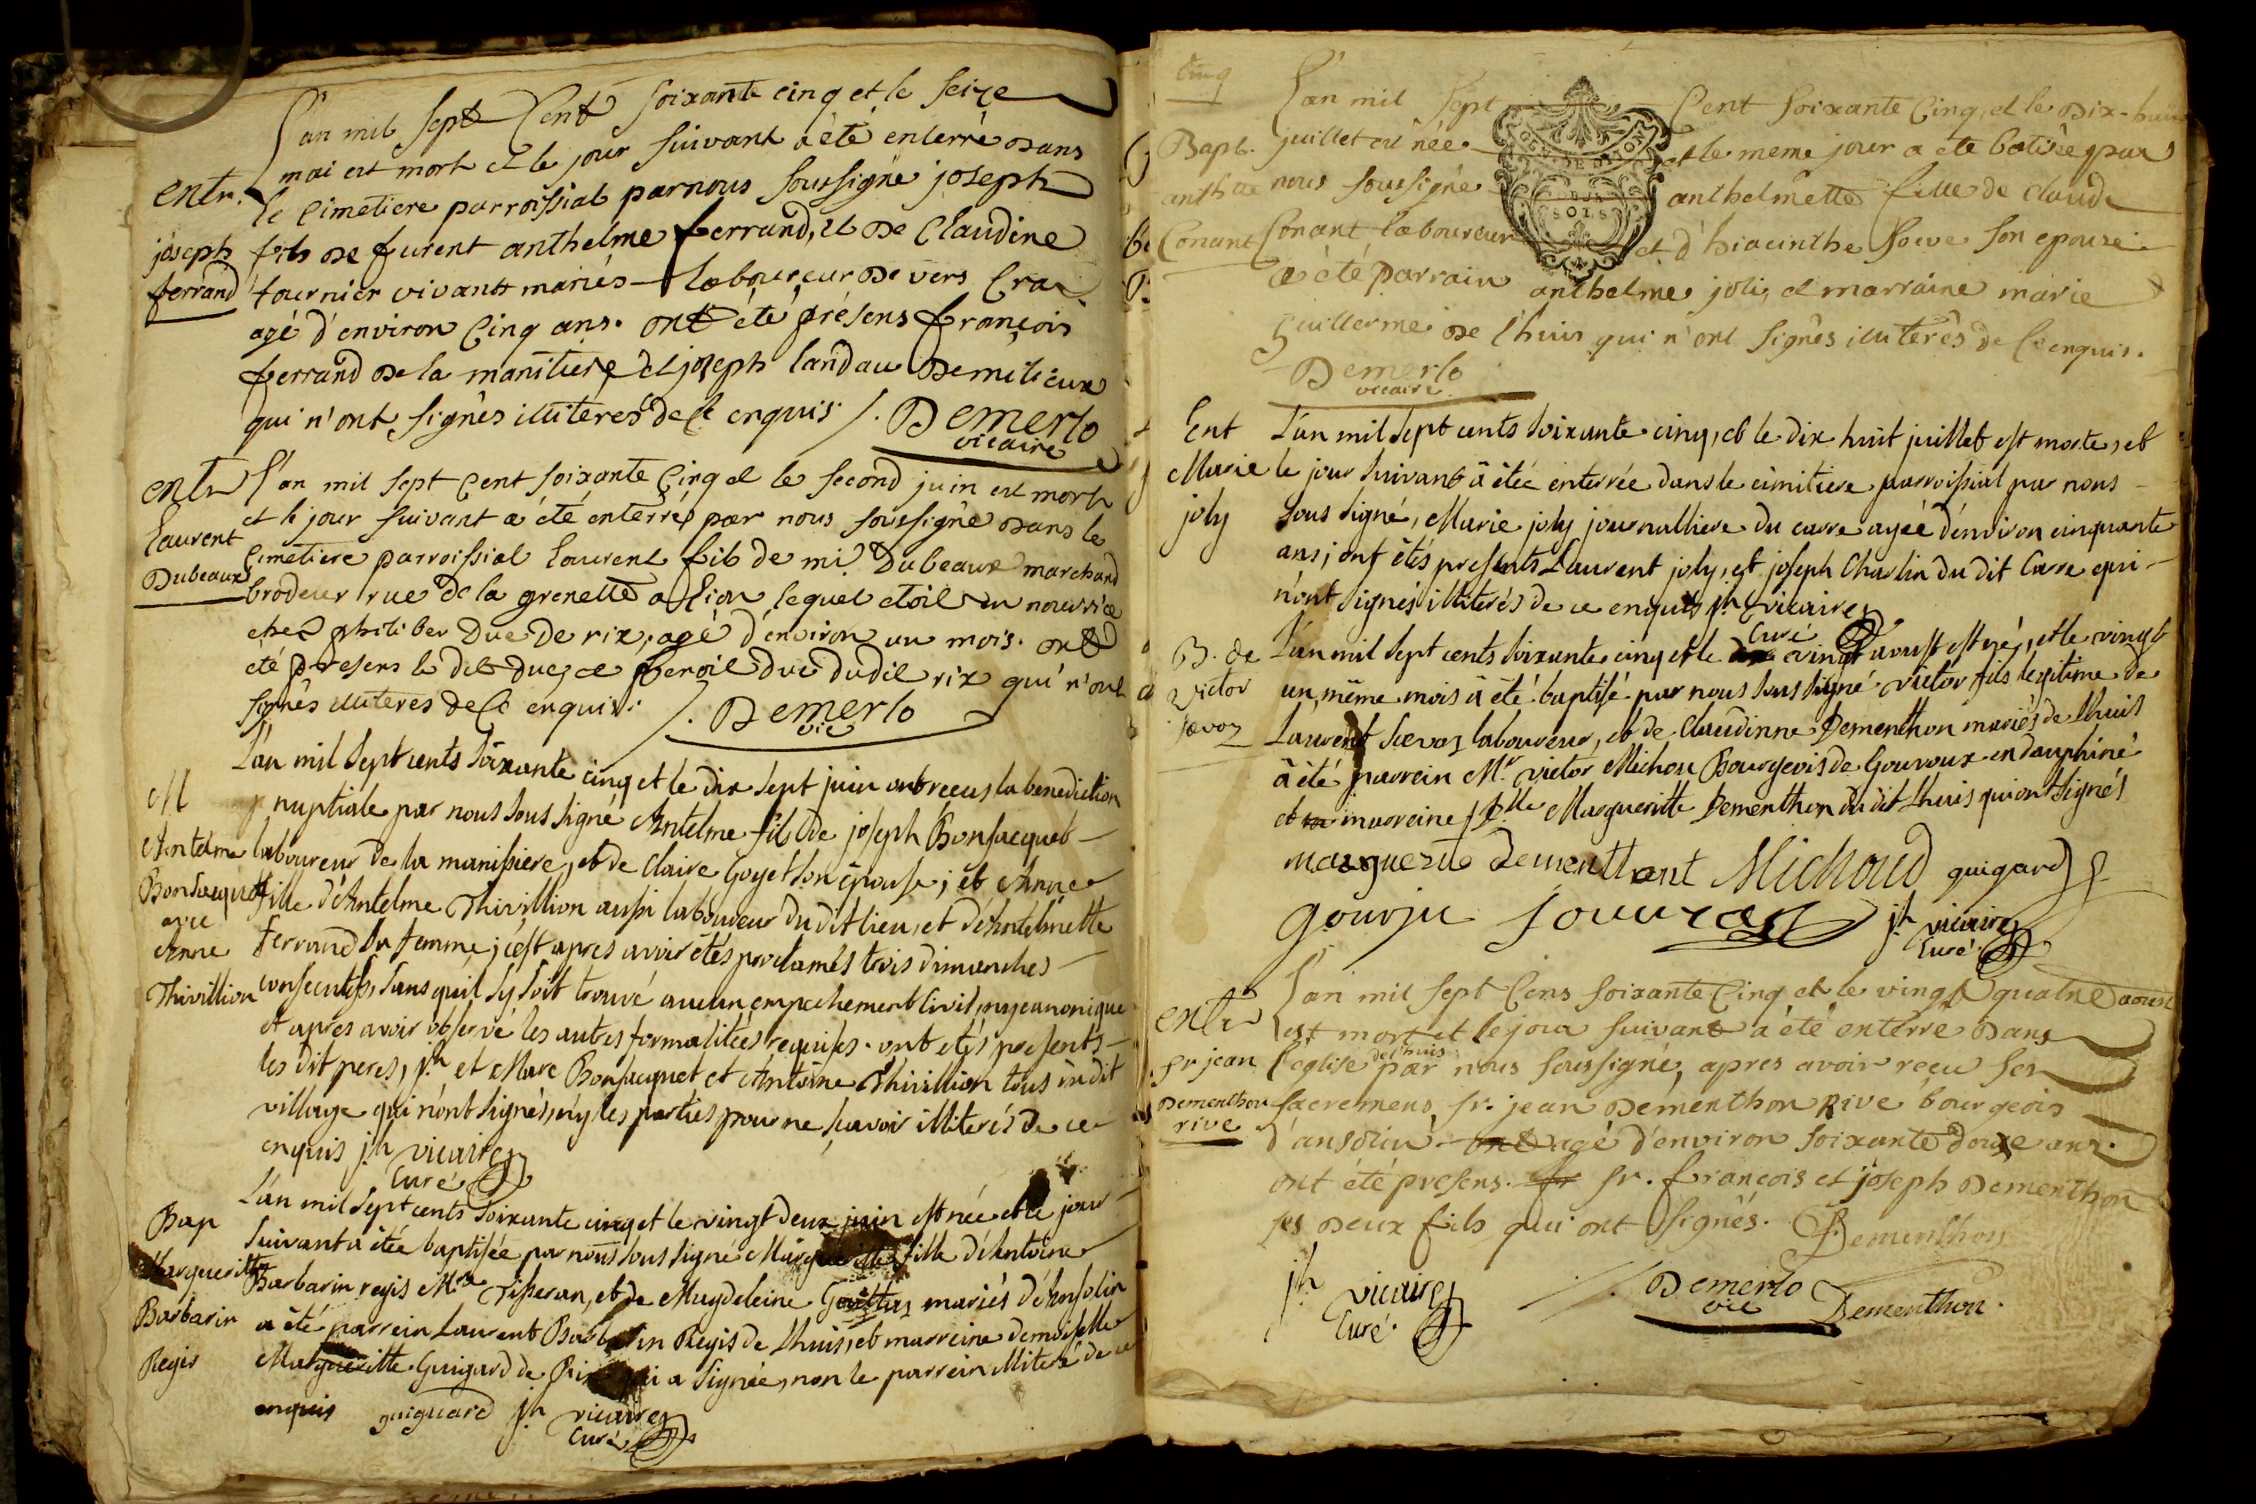 L'an mil sept Cent soixante cinq et le seize
mai est mort et le jour suivant a été enterré dans
entr. le cimetiere parroissial par nous soussigné joseph
joseph fils de furent anthelme ferrand, et de Claudine
ferrand fournier vivants mariés laboureur de vers Cra
agé d'environ Cinq ans. ont été présens françois
ferrand de la manitiere et joseph landau de milieux
qui n'ont signés illiterés de ce enquis /. Demerlo
vicaire
entr L'an mil sept cent soixante Cinq et le second juin est mort
et le jour suivant a été enterré par nous soussigné dans le
Laurent cimetiere parroissial Laurent fils de mr. Dubeaux marchand
Dubeaux brodeur rue de la grenette a Lion lequel etoit en nourrice
chez philiber Duc de rix, agé d'environ un mois. ont
été présens le dit duc, et benoit duc dudit rix qui n'ont
signés illiterés de ce enquis. /. Demerlo
vic
L'an mil sept cents soixante cinq et le dix sept juin ont receus la benediction
M nuptiale par nous sous signé Antelme fils de joseph Bonjacquet
Antelme laboureur de la manissiere, et de Claire Goyet son épouse ; et Anne
Bonjacquet fille d'Antelme Thivillion aussi laboureur du dit lieu, et d'Antelmette
avec
Anne ferrand sa femme ; c'est apres avoir étés proclamés trois dimanches
Thivillion consecutifs, sans qu'il s'y soit trouvé aucun empechement civil, ny canonique
et apres avoir observé les autres formalitées requises. ont etés presents
les dit peres, jh et Marc Bonjacquet et Antoine Thivillion tous du dit
village qui n'ont signés, n'y les parties pour ne sçavoir illiterés de ce
enquis jh vicaire
Curé
L'an mil sept cents soixante cinq et le vingt deux juin est née et le jour
Bap suivant a étée baptisée par nous sous signé Margueritte fille d'Antoine
Margueritte Barbarin regis Mtre Tisseran, et de Magdeleine mariés d'Ansolin
Barbarin a été parrein Laurent Barbarin Regis de Lhuis, et marreine demoiselle
Regis Margueritte Guigard de Rix qui a signée, non le parrein illiteré de ce
enquis guiguard jh vicaire
Curé
Cinq
L'an mil sept Cent soixante Cinq, et le dix-huit
Bapt. juillet est née et le meme jour a été batisée par
anthtte nous soussigné anthelmette fille de Claude
Conant Conant laboureur et d'hiacinthe soeve son epouse
a été parrain anthelme joli, et marraine marie
guillerme de l'huis qui n'ont signés illiterés de ce enquis.
Demerlo
vicaire
Ent L'an mil sept cents soixante cinq, et le dix huit juillet est morte, et
Marie le jour suivant a étée enterrée dans le cimitiere parroissial par nous
joly sous signé, Marie joly journalliere du carre agée d'environ cinquante
ans ; ont étés presents Laurent joly, et joseph Charlin du dit Carre qui
n'ont signés illiterés de ce enquis jh vicaire
Curé
B. de L'an mil sept cents soixante cinq et le vingt aoust est né, et le vingt
Victor un, même mois a été baptisé par nous sous signé Victor fils legitime de
Sœvoz Laurent Sœvoz laboureur, et de Claudinne Dementhon mariés de Lhuis
a été parrein Mr. Victor Michou Bourgeois de Gouvoux en dauphiné
et marreine Dlle Margueritte Dementhon du dit Lhuis qui ont signés
marguerite dementhont Michoud guigard
gouju jouuran jh vicaire
Curé
L'an mil sept Cens soixante Cinq et le vingt quatre aoust
entr est mort et le jour suivant a été enterré dans
sr jean l'eglise de l'huis par nous soussigné, apres avoir reçu ses
Dementhon sacremens, sr. jean Dementhon Rive bourgeois
rive d'ansolin agé d'environ soixante douze ans.
ont été présens. sr. françois et joseph Dementhon
ses deux fils qui ont signés. Dementhon
jh vicaire
Curé.
Demerlo
vic
Dementhon.